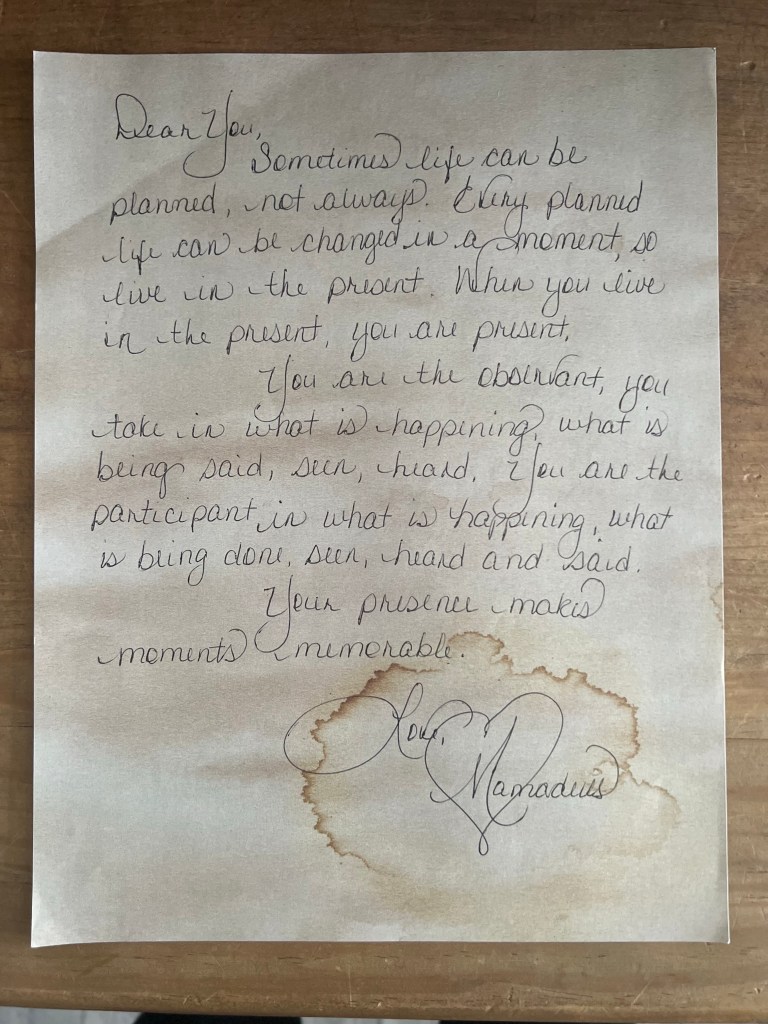 Dear You,
Sometimes life can be
planned, not always. Every planned
life can be changed in a moment, so
live in the present. When you live
in the present, you are present.
You are the observant, you
take in what is happening, what is
being said, seen, heard. You are the
participant in what is happening, what
is being done, seen, heard and said.
Your presence makes
moments memorable.
Love,